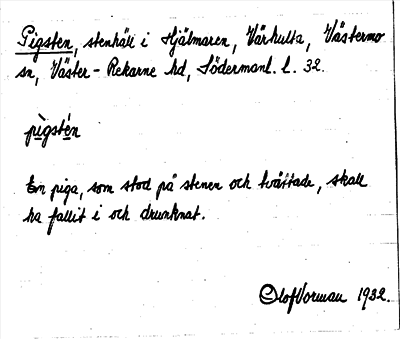 Pigsten, stenhäll i Hjälmaren, Värhulta, Västermo
sn, Väster-Rekarne hd, Södermanl. l. 32.
pìgstén
En piga, som stod på stenen och tvättade, skall
ha fallit i och drunknat.
Olof Vorman 1932.